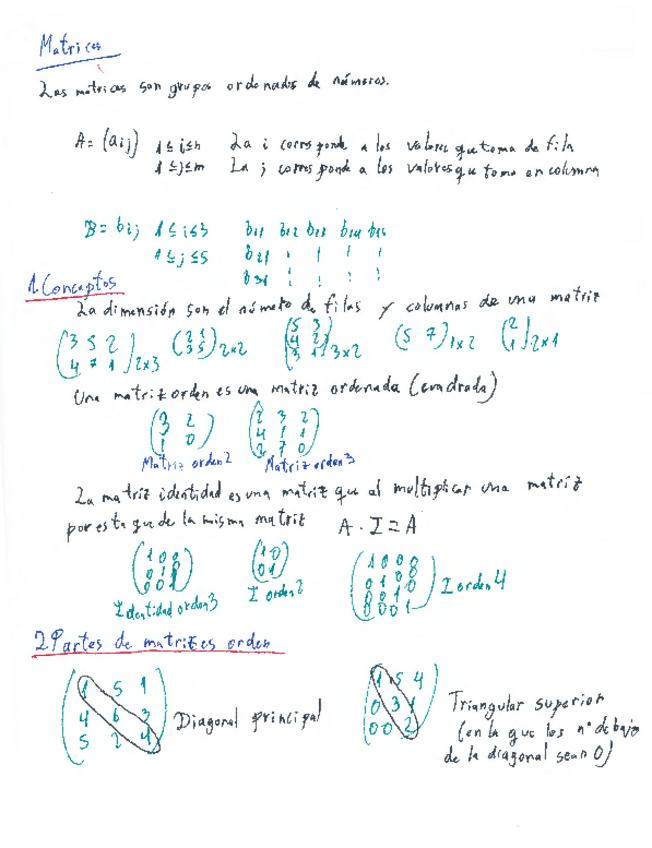 Matrices
Las matrices son grupos ordenados de números.
A = (aij) 1 ≤ i ≤ n La i corresponde a los valores que toma de fila
1 ≤ j ≤ m La j corresponde a los valores que toma en columna
B = bij 1 ≤ i ≤ 3 b11 b12 b13 b14 b15
1 ≤ j ≤ 5 b21 : : : :
b31 : : : :
1. Conceptos
La dimensión son el número de filas y columnas de una matriz
(3 5 2 / 4 7 1) 2x3 (2 1 / 3 5) 2x2 (5 3 / 4 2 / 3 1) 3x2 (5 7) 1x2 (2 / 1) 2x1
Una matriz orden es una matriz ordenada (cuadrada)
(3 2 / 1 0) (2 3 2 / 4 1 1 / 2 7 0)
Matriz orden 2 Matriz orden 3
La matriz identidad es una matriz que al multiplicar una matriz
por esta que de la misma matriz A · I = A
(1 0 0 / 0 1 0 / 0 0 1) (1 0 / 0 1) (1 0 0 0 / 0 1 0 0 / 0 0 1 0 / 0 0 0 1) I orden 4
Identidad orden 3 I orden 2
2. Partes de matrizes orden
(1 5 1 / 4 6 3 / 5 2 4) Diagonal principal
(1 5 4 / 0 3 1 / 0 0 2) Triangular superior
(en la que los nº debajo
de la diagonal sean 0)